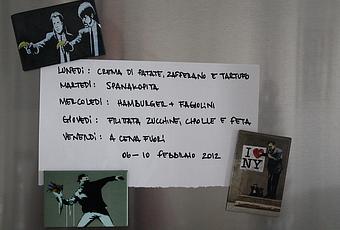 LUNEDÌ: CREMA DI PATATE, ZAFFERANO E TARTUFO
MARTEDÌ: SPANAKOPITA
MERCOLEDÌ: HAMBURGER + FAGIOLINI
GIOVEDÌ: FRITTATA ZUCCHINE, CIPOLLE E FETA
VENERDÌ: A CENA FUORI
06-10 FEBBRAIO 2012
I ♥
NY